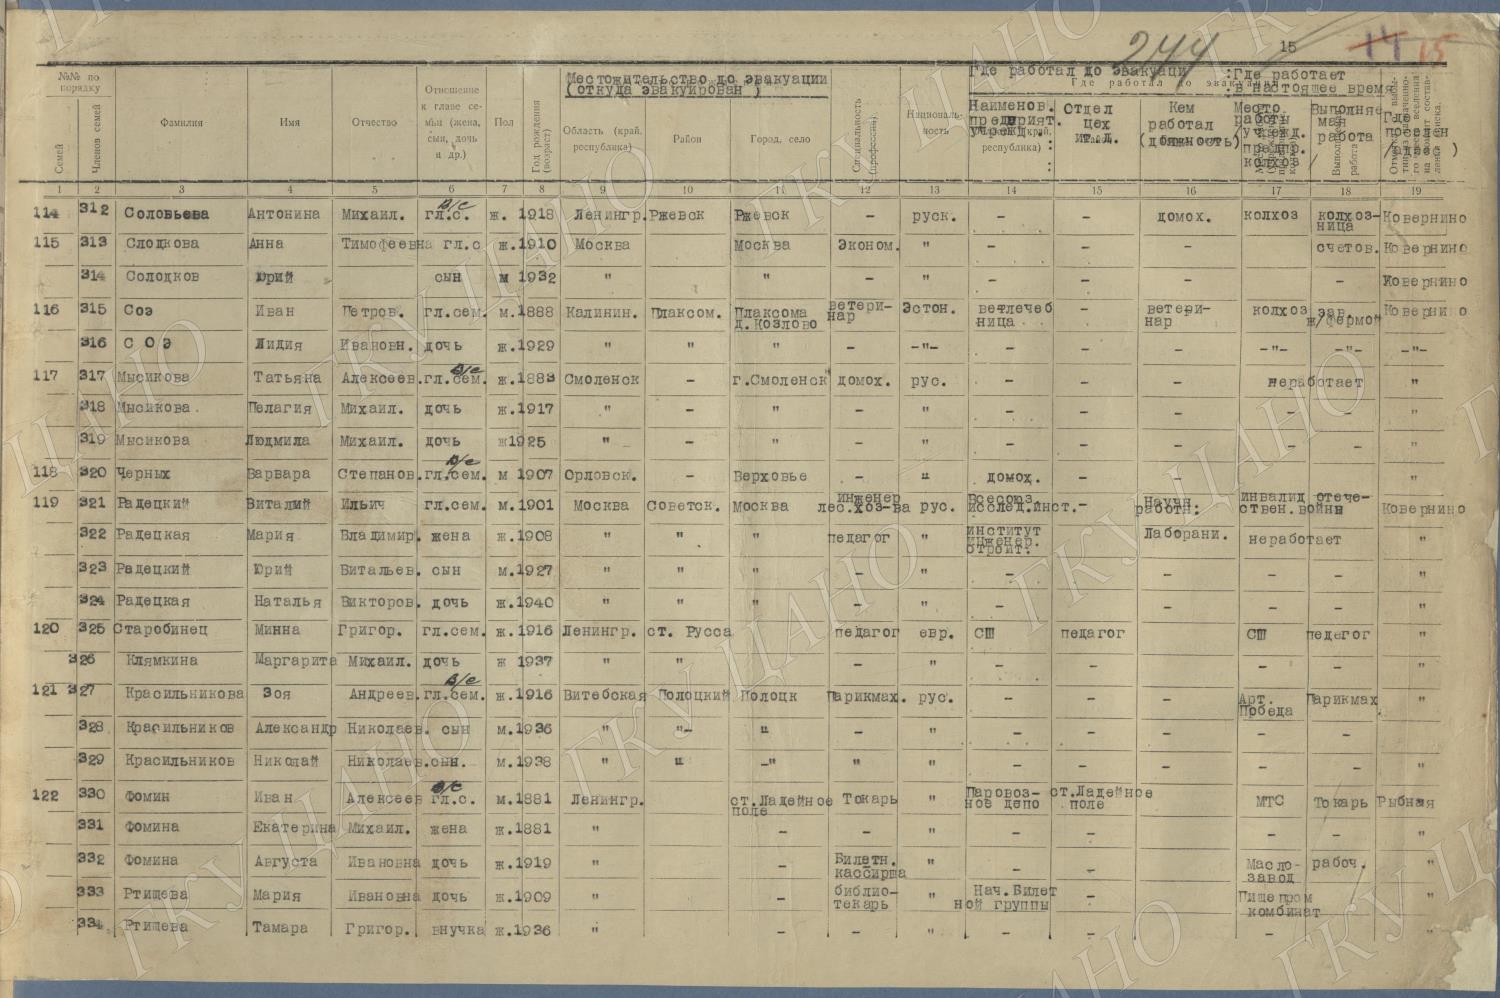 244 15 14 15
№№ по порядку
Семей
Членов семей
Фамилия
Имя
Отчество
Отношение к главе семьи (жена, сын, дочь и др.)
Пол
Год рождения (возраст)
Местожительство до эвакуации
(откуда эвакуирован)
Область (край, республика)
Район
Город, село
Специальность (профессия)
Националь-
ность
Где работал до эвакуаци
Где работал до эвакуации
:Где работает
:в настоящее время
Наименов. предприят. учрежд.
Отдел цех и т.д.
Кем работал (должность)
Место работы учрежд. предпр. колхоз
Выполняемая работа
Где поселен /адрес )
1 2 3 4 5 6 7 8 9 10 11 12 13 14 15 16 17 18 19
114 312 Соловьева Антонина Михаил. гл.с. в/с ж. 1918 Ленингр. Ржевск Ржевск – руск. – – домох. колхоз колхоз-ница Ковернино
115 313 Слодкова Анна Тимофеевна гл.с ж. 1910 Москва Москва Эконом. " – – – счетов. Ковернино
314 Солодков Юрий сын м 1932 " " – " – – – Ковернино
116 315 Соэ Иван Петров. гл.сем. м. 1888 Калинин. Плаксом. Плаксома д.Козлово ветери-нар Эстон. ветлечеб ница – ветери-нар колхоз зав. ж/фермой Ковернино
316 С О Э Лидия Ивановн. дочь ж. 1929 " " " – –"– – – – –"– –"– –"–
117 317 Мысикова Татьяна Алексеев. гл.сем. в/с ж. 1883 Смоленск – г.Смоленск домох. рус. – – – неработает "
318 Мысикова. Пелагия Михаил. дочь ж. 1917 " – " – " – – – – – "
319 Мысикова Людмила Михаил. дочь ж 1925 " – " – " – – – – – "
118 320 Черных Варвара Степанов. гл.сем. в/с м 1907 Орловск. – Верховье – " домох. – – – – "
119 321 Радецкий Виталий Ильич гл.сем. м. 1901 Москва Советск. Москва инженер лес.хоз-ва рус. Всесоюз. исслед.инст. – Научн. работн: инвалид отече-ствен.войны Ковернино
322 Радецкая Мария Владимир. жена ж. 1908 " " " педагог " институт инженер. строит. – Лаборани. неработает "
323 Радецкий Юрий Витальев. сын м. 1927 " " " – " – – – – – "
324 Радецкая Наталья Викторов. дочь ж. 1940 " " " – " – – – – – "
120 325 Старобинец Минна Григор. гл.сем. ж. 1916 Ленингр. ст. Русса педагог евр. СШ педагог СШ педегог "
326 Клямкина Маргарита Михаил. дочь ж 1937 " " – " – – – – – "
121 327 Красильникова Зоя Андреев. гл.сем. в/с ж. 1916 Витебская Полоцкий Полоцк Парикмах. рус. – – – Арт. Победа Парикмах. "
328 Красильников Александр Николаев. сын м. 1936 " "– " – " – – – – – "
329 Красильников Николай Николаев. сын. м. 1938 " " –" " " – – – – – "
122 330 Фомин Иван Алексеев гл.с. в/с м. 1881 Ленингр. ст.Ладейное поле Токарь " Паровоз-ное депо ст.Ладейное поле МТС Токарь Рыбная
331 Фомина Екатерина Михаил. жена ж. 1881 " – – " – – – – "
332 Фомина Августа Ивановна дочь ж. 1919 " – Билетн. кассирша " – – Масло-завод рабоч. "
333 Ртищева Мария Ивановна дочь ж. 1909 " – библио-текарь " Нач.Билет ной группы – Пищепром комбинат "
334 Ртищева Тамара Григор. внучка ж. 1936 " – – " – – – – "
ГКУ ЦАНО